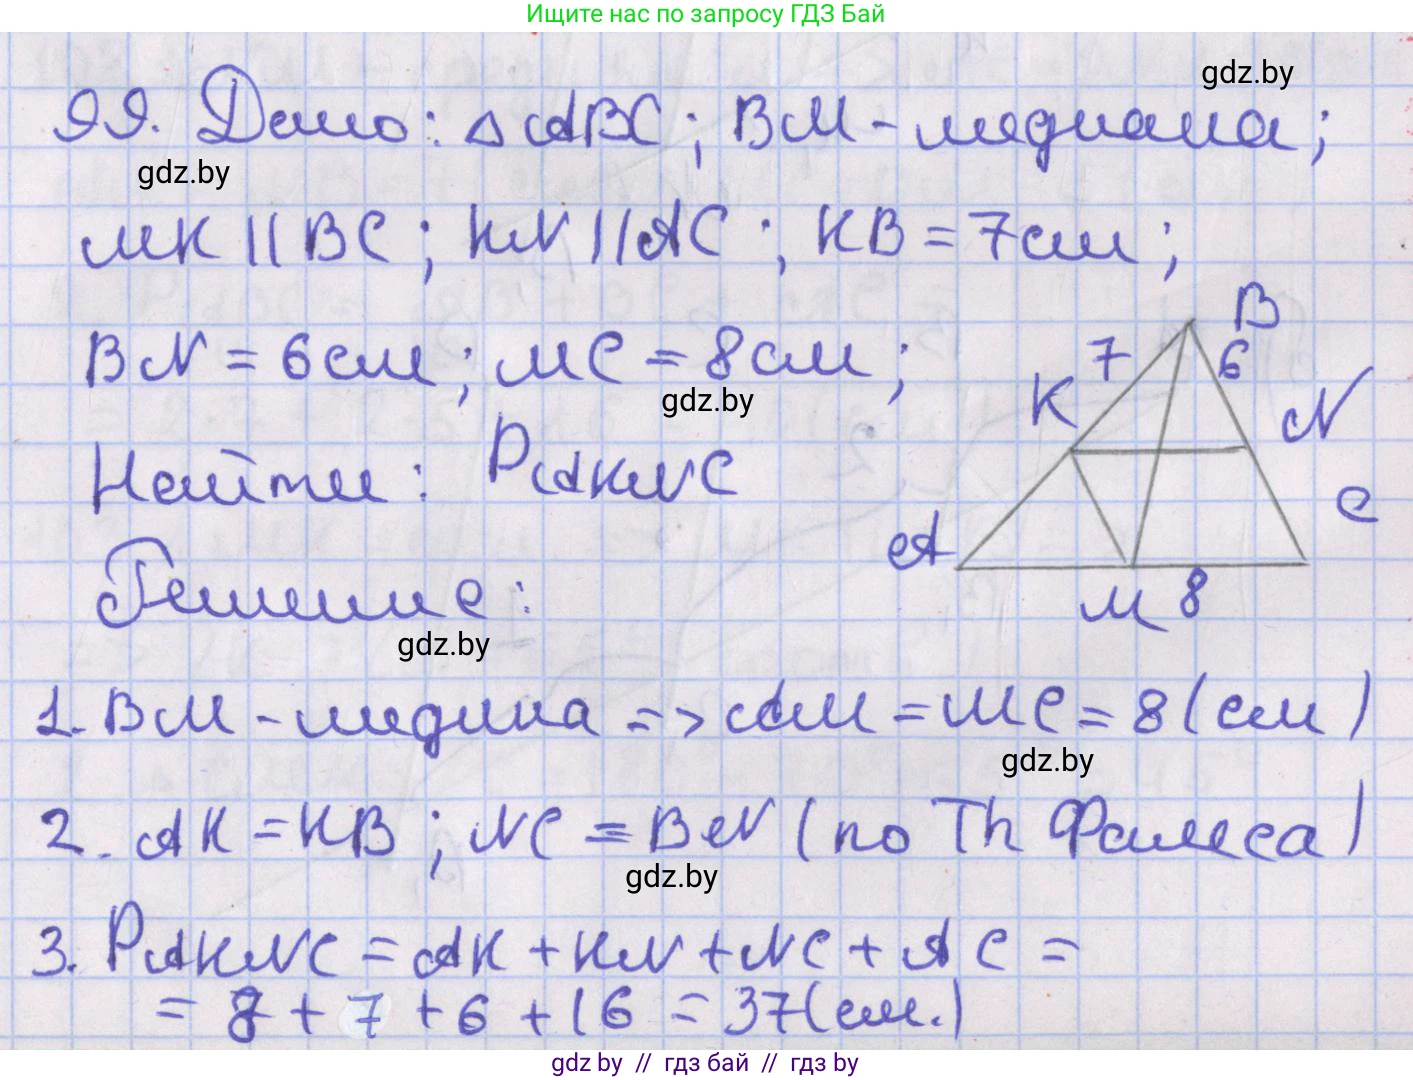 Ищите нас по запросу ГДЗ Бай
gdz.by
99. Дано: △ABC; BM - медиана;
gdz.by
MK || BC; KN || AC; KB = 7см;
BN = 6см; MC = 8см;
gdz.by
Найти: PAKNC
B
7
6
K
N
C
A
M 8
Решение:
gdz.by
1. BM - медина => AM = MC = 8 (см)
gdz.by
2. AK = KB; NC = BN (по Th Фалеса)
gdz.by
3. PAKNC = AK + KN + NC + AC =
= 8 + 7 + 6 + 16 = 37 (см.)
gdz.by // гдз бай // гдз by